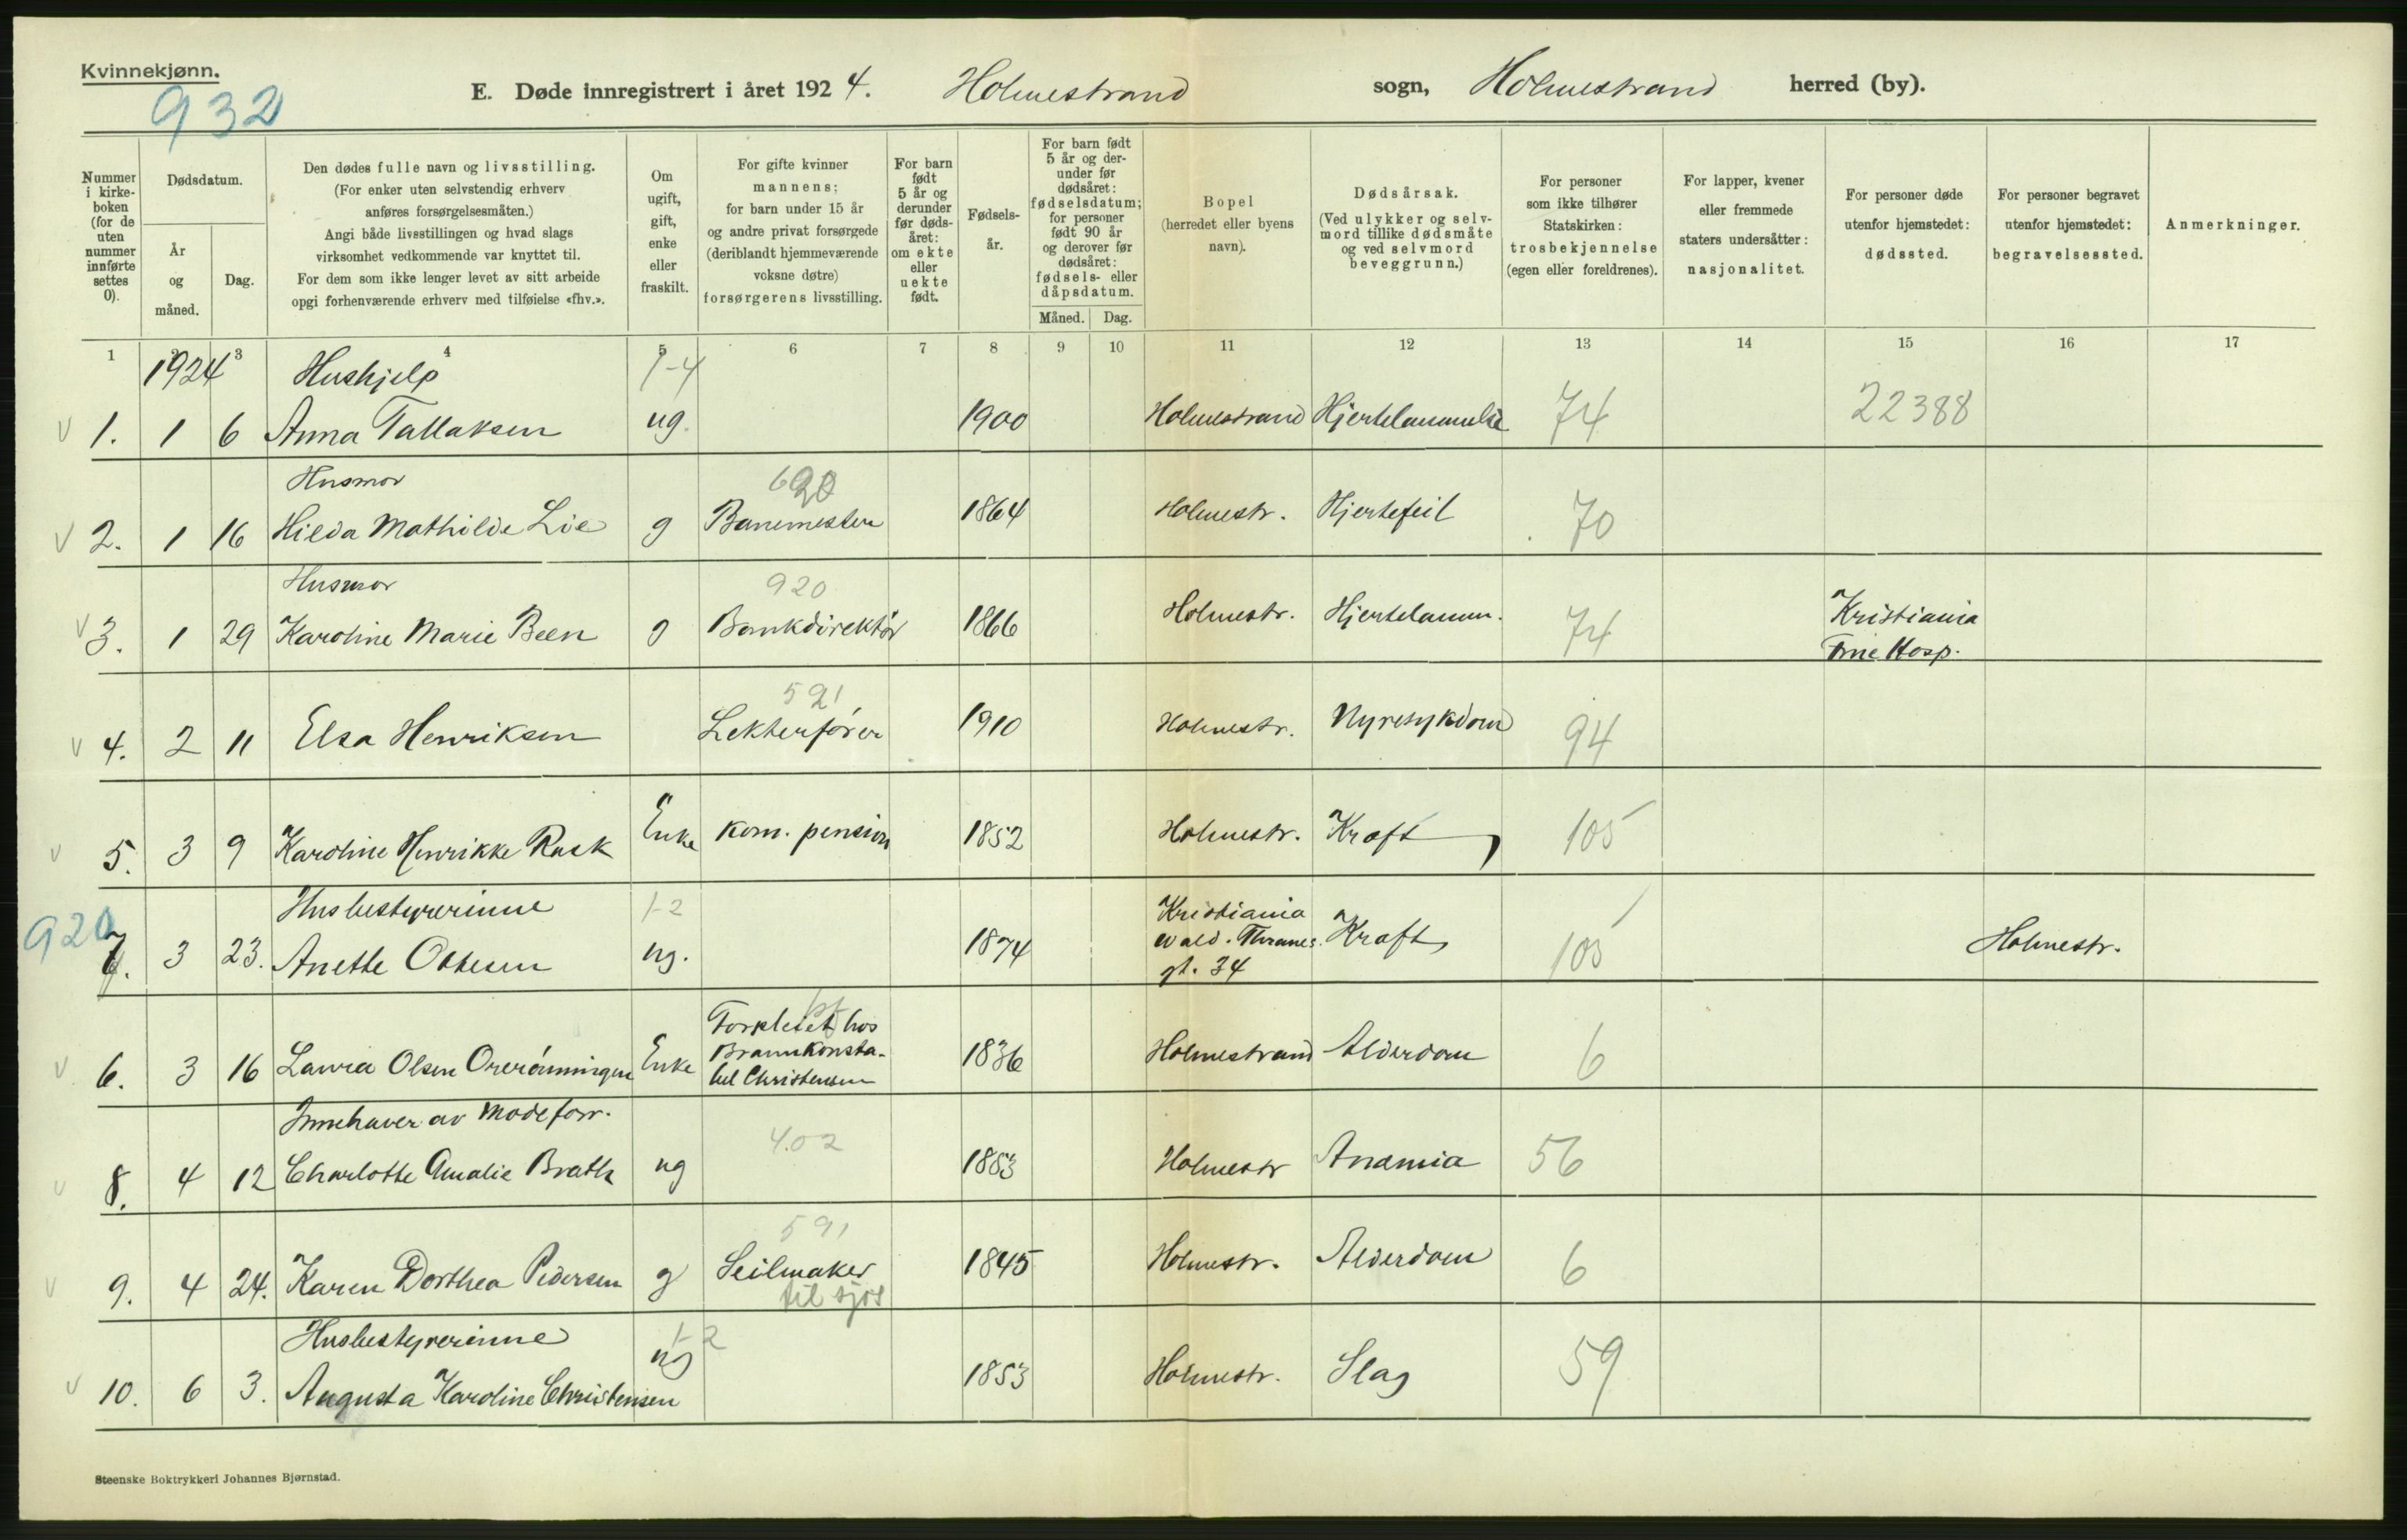 Kvinnekjønn.
932
E. Døde innregistrert i året 1924. Holmestrand sogn, Holmestrand herred (by).
Nummer i kirkeboken (for de uten nummer innførte settes 0).
Dødsdatum.
År og måned.
Dag.
Den dødes fulle navn og livsstilling.
(For enker uten selvstendig erhverv
anføres forsørgelsesmåten.)
Angi både livsstillingen og hvad slags
virksomhet vedkommende var knyttet til.
For dem som ikke lenger levet av sitt arbeide
opgi forhenværende erhverv med tilføielse «fhv.».
Om ugift, gift, enke eller fraskilt.
For gifte kvinner
mannens;
for barn under 15 år
og andre privat forsørgede
(deriblandt hjemmeværende
voksne døtre)
forsørgerens livsstilling.
For barn født 5 år og derunder før dødsåret: om ekte eller uekte født.
Fødselsår.
For barn født 5 år og derunder før dødsåret: fødselsdatum; for personer født 90 år og derover før dødsåret: fødsels- eller dåpsdatum.
Måned. Dag.
Bopel
(herredet eller byens
navn).
Dødsårsak.
(Ved ulykker og selvmord tillike dødsmåte
og ved selvmord
beveggrunn.)
For personer
som ikke tilhører
Statskirken:
trosbekjennelse
(egen eller foreldrenes).
For lapper, kvener
eller fremmede
staters undersåtter:
nasjonalitet.
For personer døde
utenfor hjemstedet:
dødssted.
For personer begravet
utenfor hjemstedet:
begravelsessted.
Anmerkninger.
1 2 3 4 5 6 7 8 9 10 11 12 13 14 15 16 17
1924 Hushjelp 1-4
v 1. 1 6 Anna Tallaksen ug. 1900 Holmestrand Hjertelammelse 74 22388
Husmor 620
v 2. 1 16 Hilda Mathilde Lie g Banemester 1864 Holmestr. Hjertefeil 70
Husmor 920
v 3. 1 29 Karoline Marie Been g Bankdirektør 1866 Holmestr. Hjertelamm. 74 Kristiania
Hosp.
591
v 4. 2 11 Elsa Henriksen Lekterfører 1910 Holmestr. Nyresykdom 94
v 5. 3 9 Karoline Henrikke Rask Enke Kom. pension 1852 Holmestr. Kræft 105
920 Husbestyrerinne 1-2 Kristiania
7. 3 23. Anette Ottesen ug. 1874 Wald. Thranes Kræft 105 Holmestr.
gt. 34
Forpleiet hos
v 6. 3 16 Laura Olsen Orerønningen Enke Brannkonsta- 1836 Holmestrand Alderdom 6
bel Christensen
Innehaver av Modeforr. 4.02
v 8. 4 12 Charlotte Amalie Brath ug 1883 Holmestr Anæmia 56
591
v 9. 4 24. Karen Dorthea Pedersen g Seilmaker 1845 Holmestr. Alderdom 6
til sjøs
Husbestyrerinne 1-2
v 10. 6 3. Augusta Karoline Christensen ug 1853 Holmestr. Slag 59
Steenske Boktrykkeri Johannes Bjørnstad.